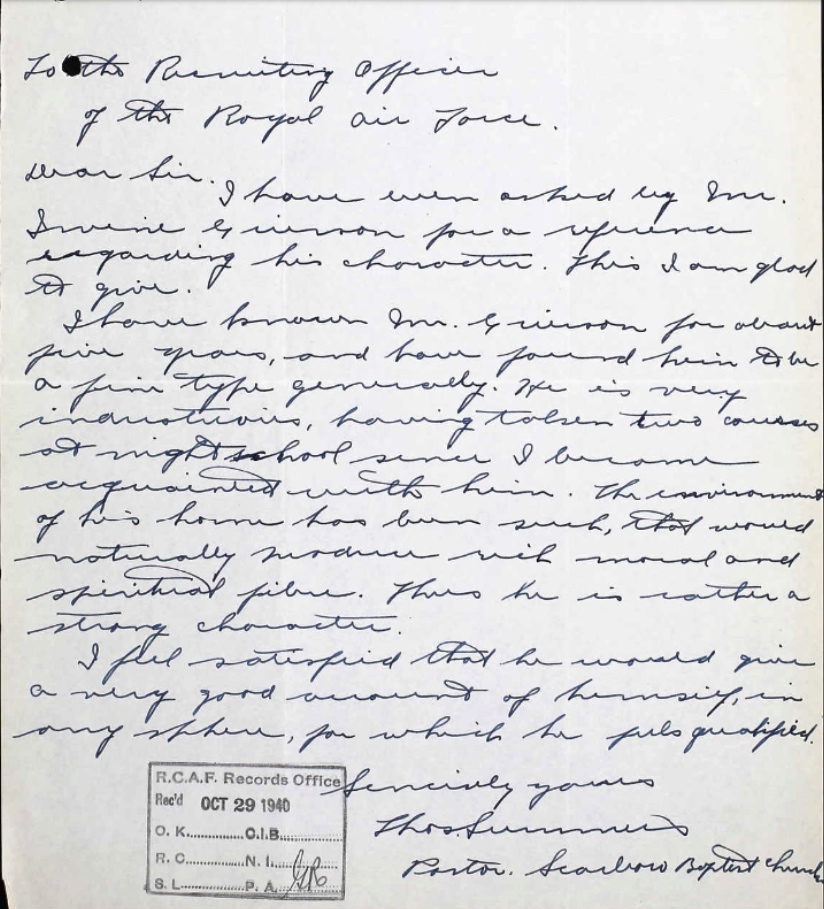 To the Recruiting Officer
of the Royal Air Force.
Dear Sir.
I have been asked by Mr.
Irvine Grierson for a reference
regarding his character. This I am glad
to give.
I have known Mr. Grierson for about
five years, and have found him to be
a fine type generally. He is very
industrious, having taken two courses
at night school since I became
acquainted with him. The environment
of his home has been such, that would
naturally produce rich moral and
spiritual fibre. Thus he is rather a
strong character.
I feel satisfied that he would give
a very good account of himself, in
any sphere, for which he feels qualified.
Sincerely yours
Thos. Summers
Pastor. Scarboro Baptist Church
R.C.A.F. Records Office
Rec'd OCT 29 1940
O. K.............C.I.B.............
R. C.............N. I.............
S. L.............P. A.............